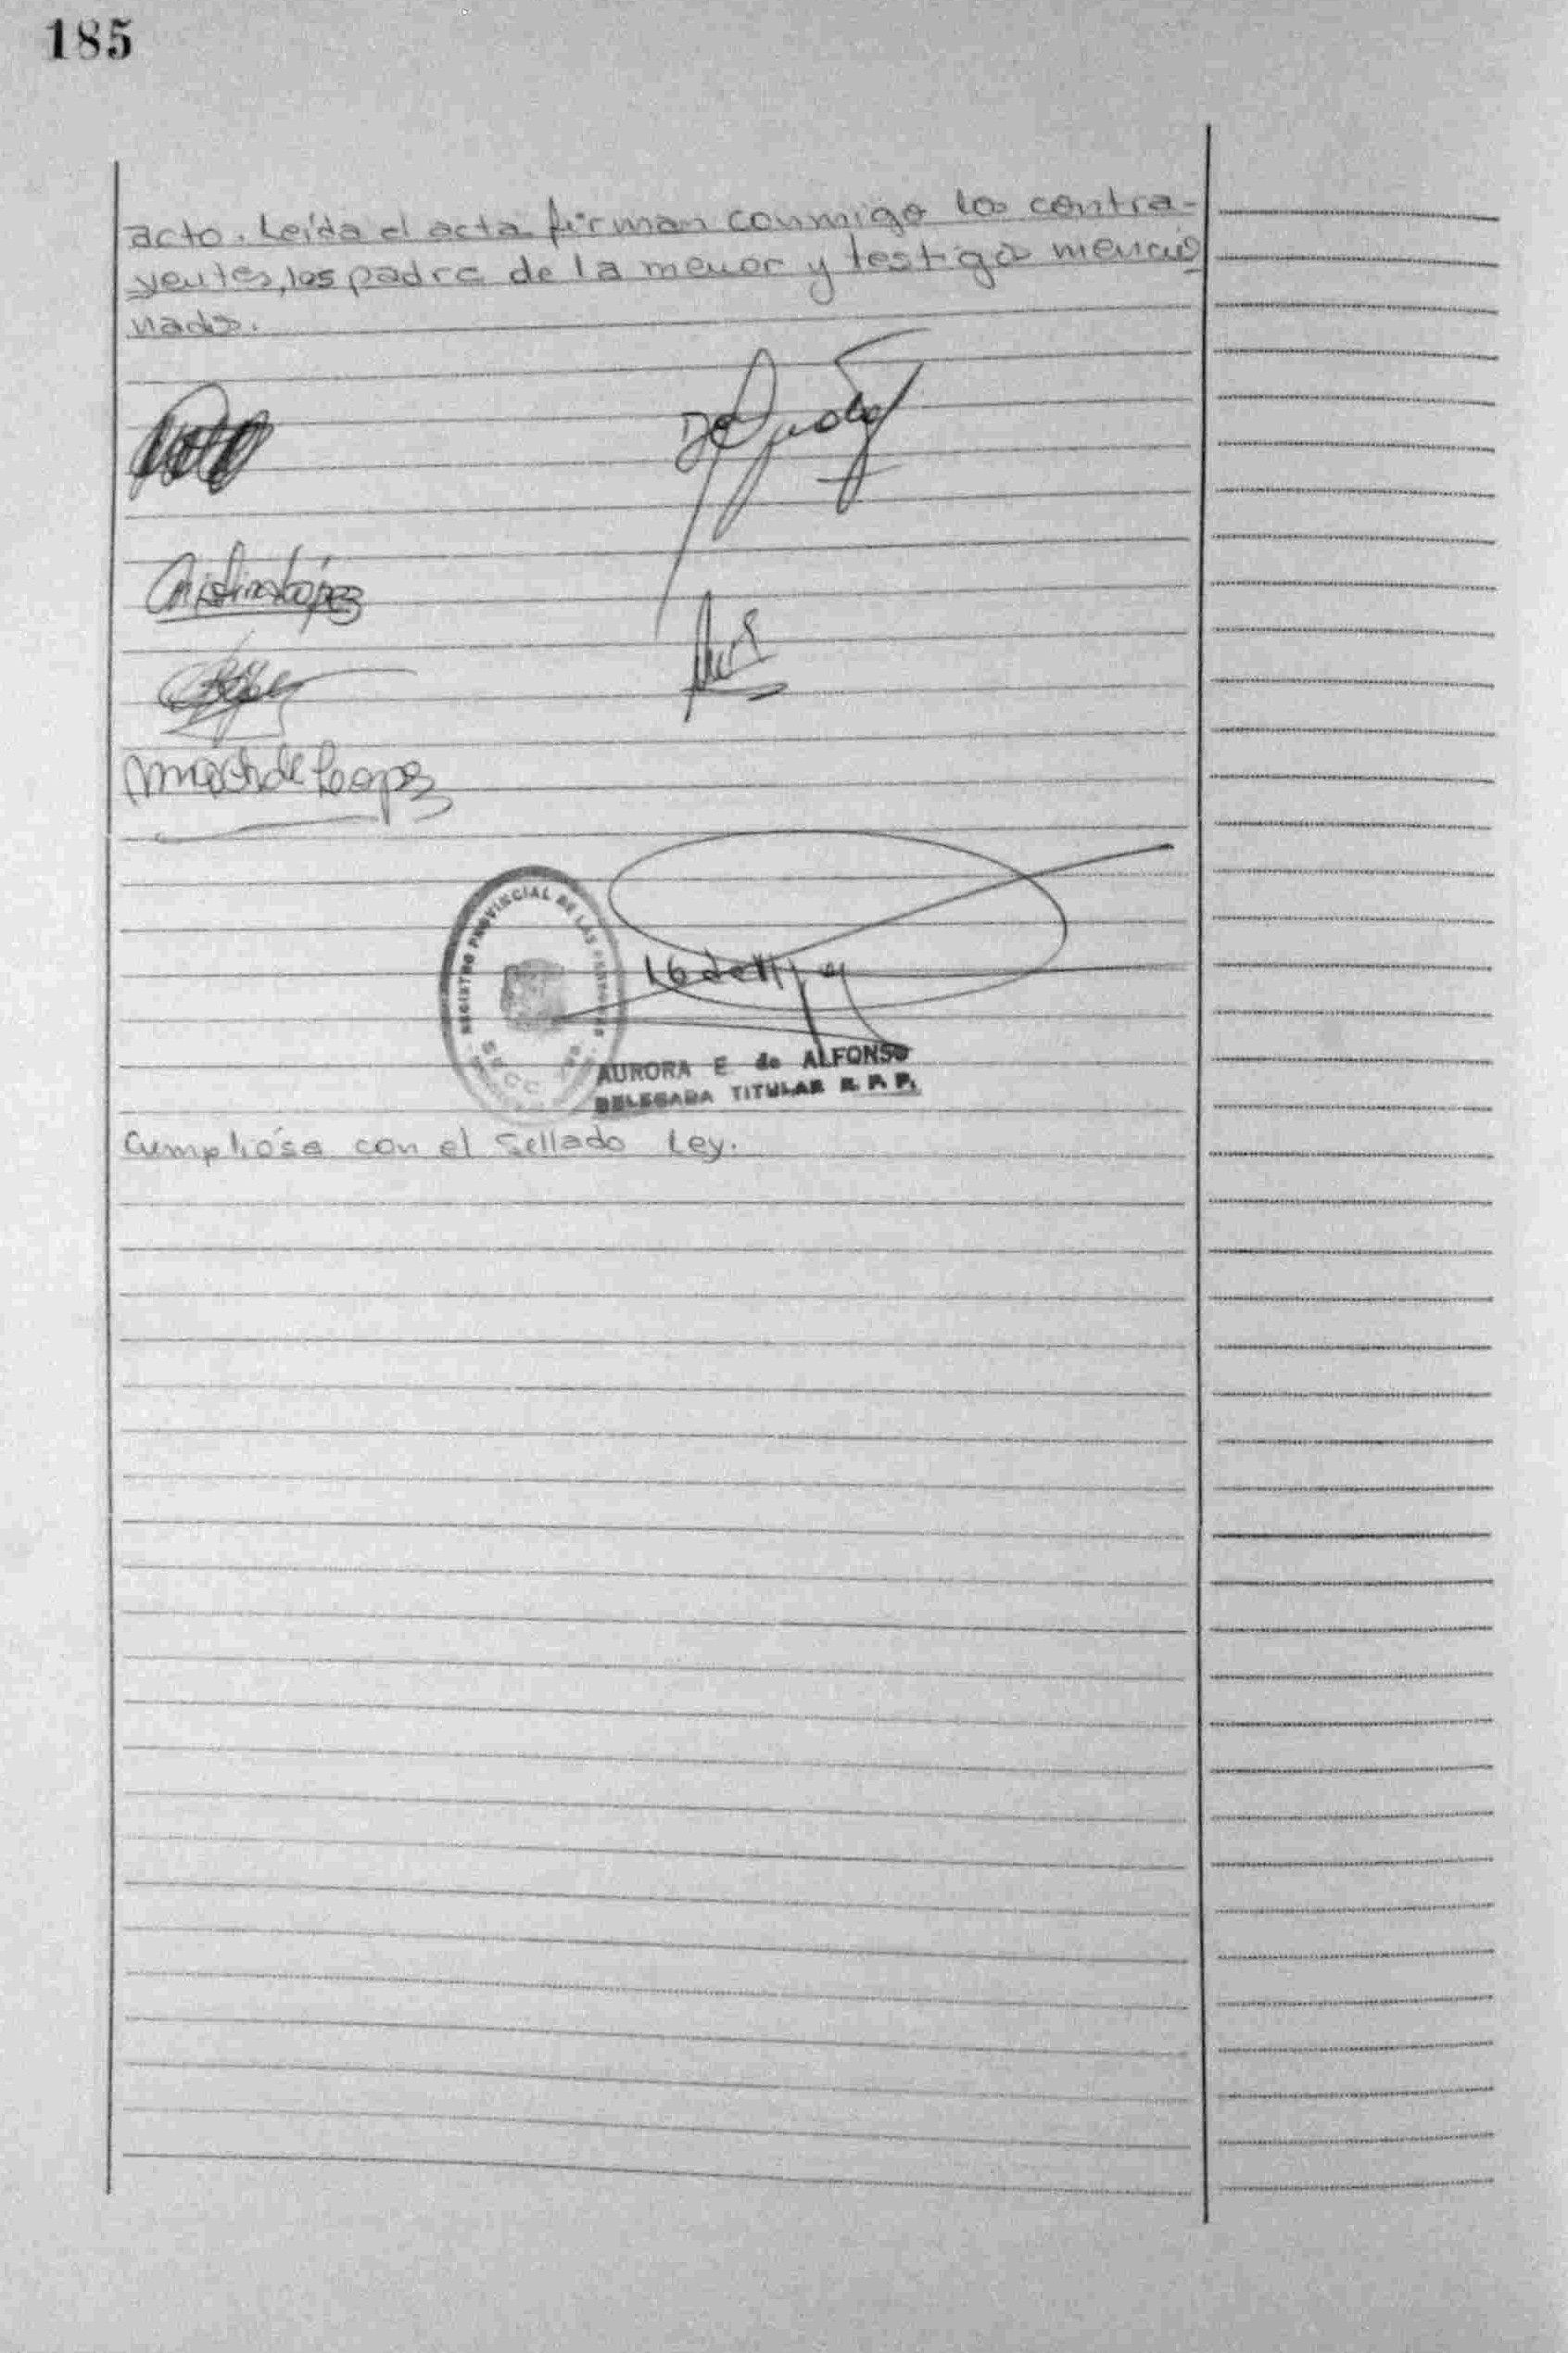 185
acto. Leída el acta firman conmigo los contra-
yentes, los padre de la menor y testigos mencio
nados.
Cristina López
de Loopez
REGISTRO PROVINCIAL DE LAS PERSONAS
SECC
16 de
AURORA E. de ALFONSO
DELEGADA TITULAR R. P. P.
Cumplióse con el Sellado Ley.